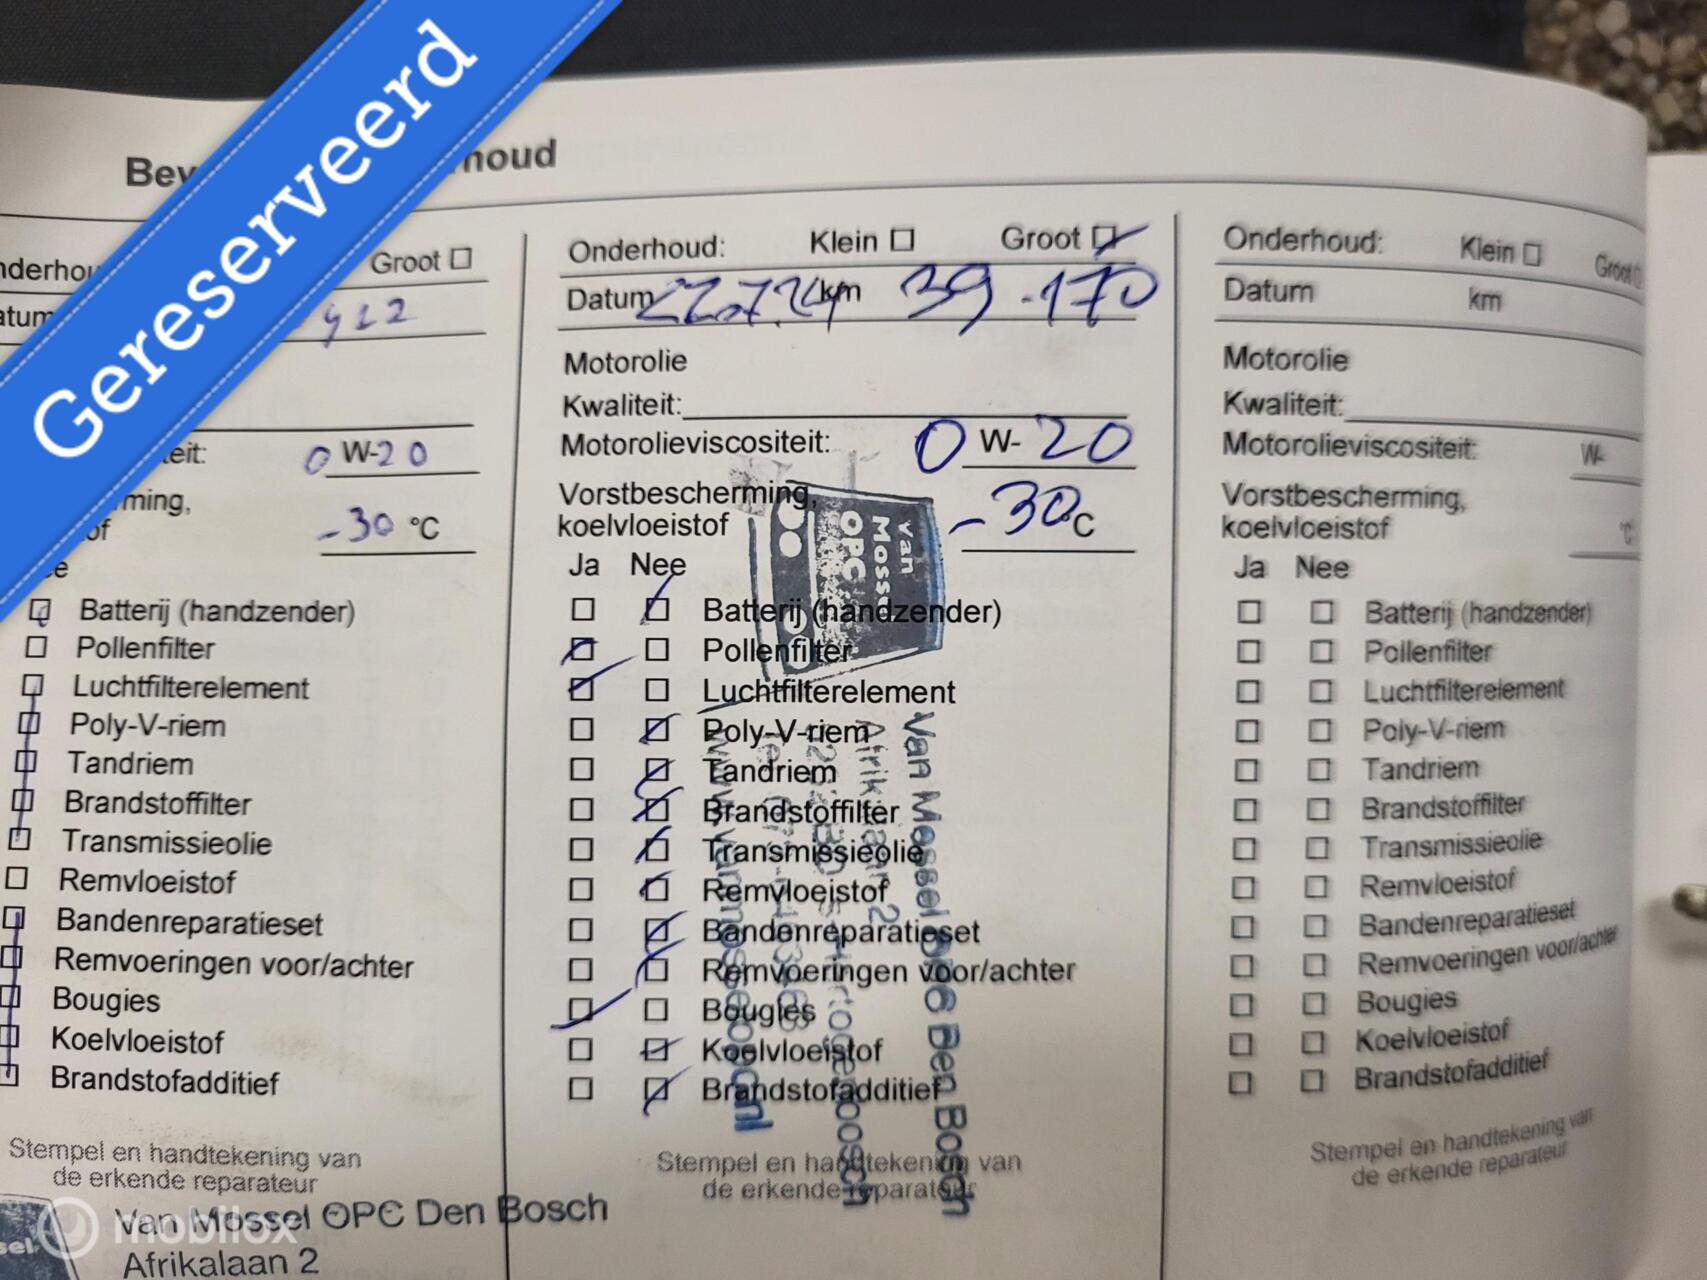 Gereserveerd
Bev
houd
nderhou
Groot
atum
922
teit:
0 W-20
rming,
of
-30 °C
ee
Batterij (handzender)
Pollenfilter
Luchtfilterelement
Poly-V-riem
Tandriem
Brandstoffilter
Transmissieolie
Remvloeistof
Bandenreparatieset
Remvoeringen voor/achter
Bougies
Koelvloeistof
Brandstofadditief
Stempel en handtekening van
de erkende reparateur
Van Mossel OPC Den Bosch
Afrikalaan 2
mobilox
Onderhoud: Klein Groot
Datum 22.7.24 km 39.170
Motorolie
Kwaliteit:
Motorolieviscositeit: 0 W-20
Vorstbescherming,
koelvloeistof -30 °C
Ja Nee
Batterij (handzender)
Pollenfilter
Luchtfilterelement
Poly-V-riem
Tandriem
Brandstoffilter
Transmissieolie
Remvloeistof
Bandenreparatieset
Remvoeringen voor/achter
Bougies
Koelvloeistof
Brandstofadditief
Stempel en handtekening van
de erkende reparateur
Van
Mossel
OPC
Van Mossel OPC Den Bosch
Afrikalaan 2
Onderhoud: Klein Groot
Datum km
Motorolie
Kwaliteit:
Motorolieviscositeit: W-
Vorstbescherming,
koelvloeistof °C
Ja Nee
Batterij (handzender)
Pollenfilter
Luchtfilterelement
Poly-V-riem
Tandriem
Brandstoffilter
Transmissieolie
Remvloeistof
Bandenreparatieset
Remvoeringen voor/achter
Bougies
Koelvloeistof
Brandstofadditief
Stempel en handtekening van
de erkende reparateur